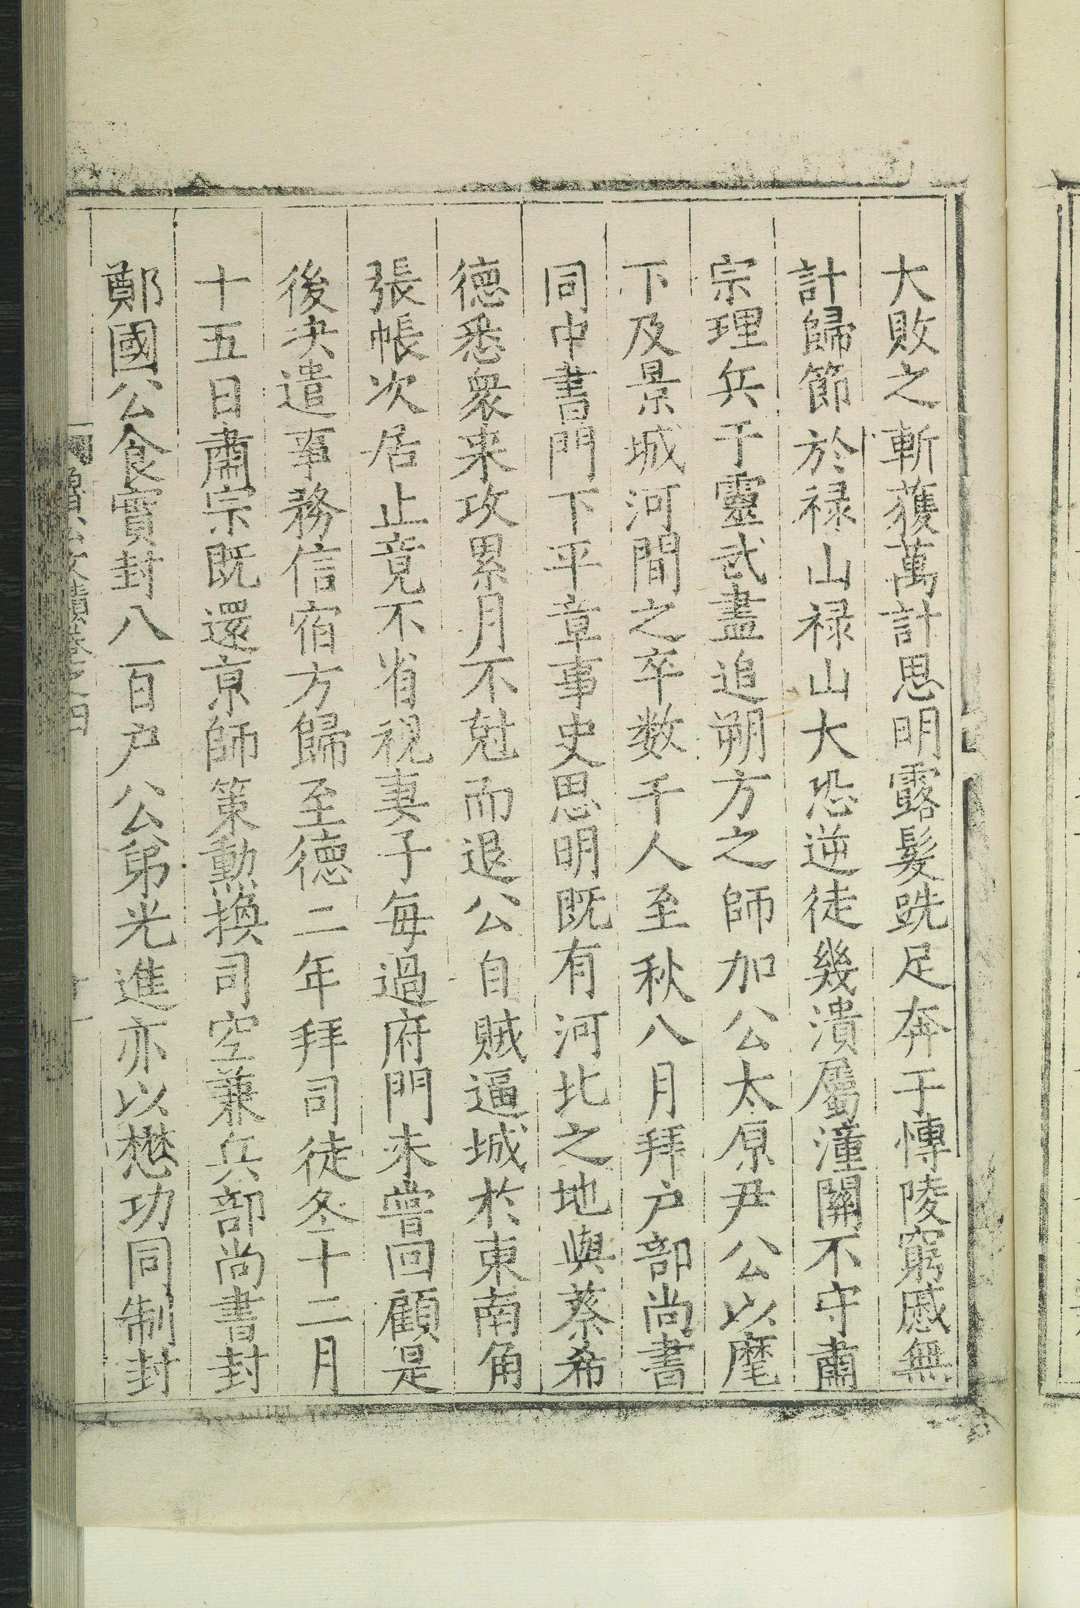 大敗之斬獲萬計思明露髮跣足奔于慱陵窮慼無
計歸節於禄山禄山大恐逆徒幾潰屬潼關不守肅
宗理兵于靈武盡追朔方之師加公太原尹公以麾
下及景城河間之卒数千人至秋八月拜户部尚書
同中書門下平章事史思明既有河北之地與蔡希
德悉衆来攻累月不尅而退公自賊逼城於東南角
張帳次居止竟不省視妻子每過府門未嘗回顧是
後决遣事務信宿方歸至德二年拜司徒冬十二月
十五日肅宗既還京師策勳換司空兼兵部尚書封
鄭國公食實封八百户公弟光進亦以懋功同制封
魯公文集卷之四